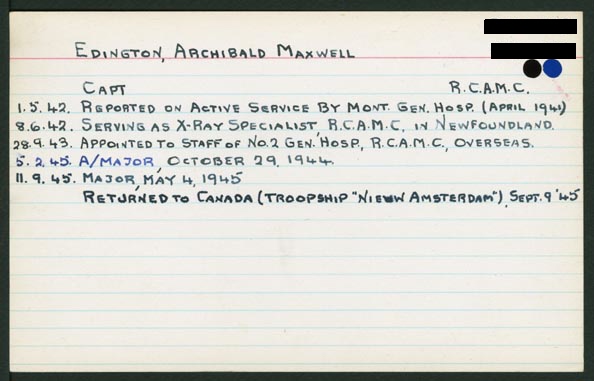 EDINGTON, ARCHIBALD MAXWELL
CAPT R.C.A.M.C.
1.5.42. REPORTED ON ACTIVE SERVICE BY MONT. GEN. HOSP. (APRIL 1941)
8.6.42. SERVING AS X-RAY SPECIALIST, R.C.A.M.C, IN NEWFOUNDLAND.
28.9.43. APPOINTED TO STAFF OF NO.2 GEN. HOSP, R.C.A.M.C, OVERSEAS.
5.2.45. A/MAJOR, OCTOBER 29, 1944.
11.9.45. MAJOR, MAY 4, 1945
RETURNED TO CANADA (TROOPSHIP "NIEUW AMSTERDAM"), SEPT. 9 '45